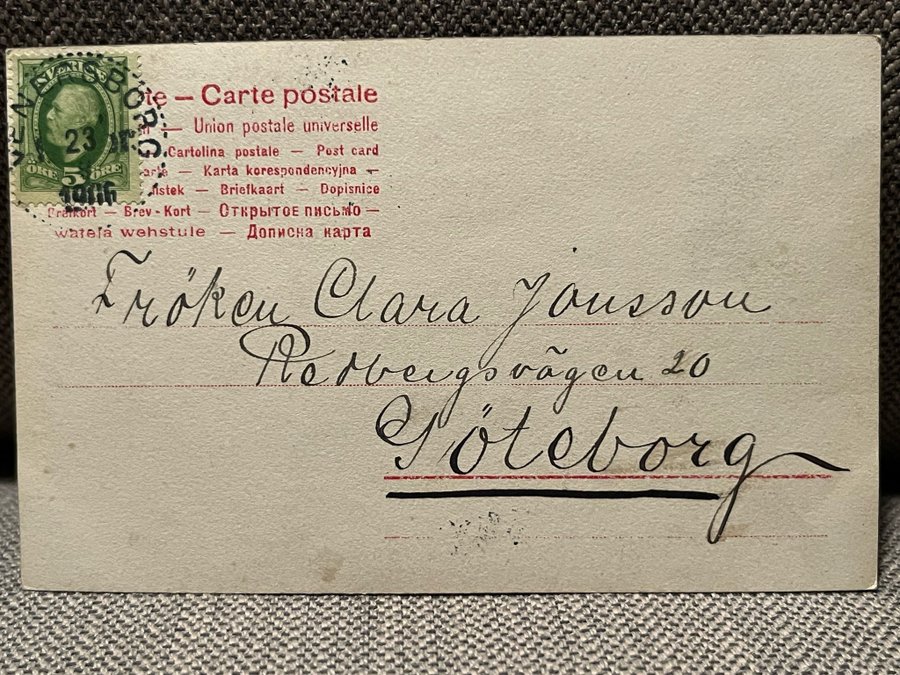 SVERIGE
5
ÖRE ÖRE
VENERSBORG
23
1906
te — Carte postale
— Union postale universelle
Cartolina postale — Post card
— Karta korespondencyjna —
listek — Briefkaart — Dopisnice
Brefkort — Brev-Kort — Открытое письмо —
watela wehstule — Дописна карта
Fröken Clara Jonsson
Redbergsvägen 20
Göteborg